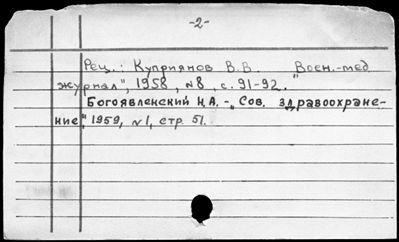 -2-
Рец.: Куприянов В.В. „Воен.-мед.
журнал", 1958, №8, с. 91-92.
Богоявленский Н.А. - „Сов. здравоохране-
ние", 1959, №1, стр. 51.